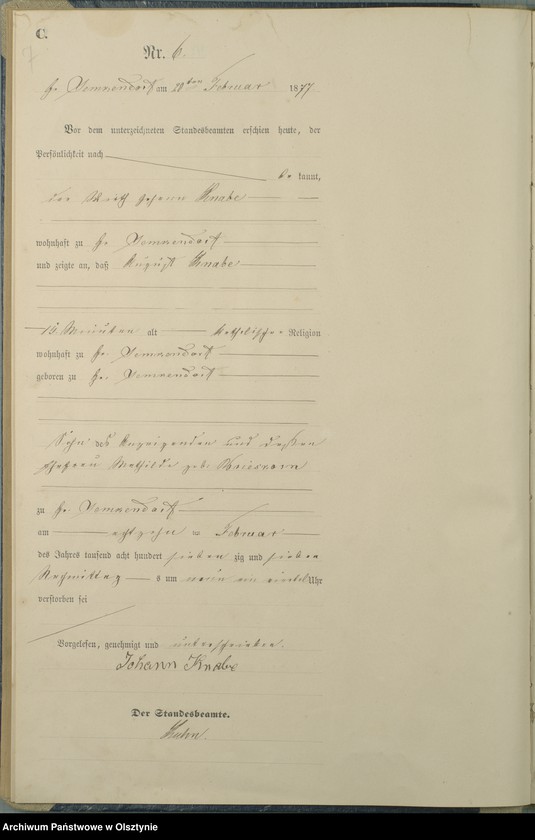 C.
7
Nr. 6.
Gr. Lemkendorf am 20ten Februar 1877
Vor dem unterzeichneten Standesbeamten erschien heute, der
Persönlichkeit nach
be kannt,
der Wirth Johann Knabe
wohnhaft zu Gr. Lemkendorf
und zeigte an, daß August Knabe
15 Minuten alt katholischer Religion
wohnhaft zu Gr. Lemkendorf
geboren zu Gr. Lemkendorf
Sohn des Anzeigenden und dessen
Ehefrau Mathilde geb.
zu Gr. Lemkendorf
am achtzehn ten Februar
des Jahres tausend acht hundert sieben zig und sieben
Nachmittag s um neun ein viertel Uhr
verstorben sei
Vorgelesen, genehmigt und unterschrieben.
Johann Knabe
Der Standesbeamte.
Archiwum Państwowe w Olsztynie